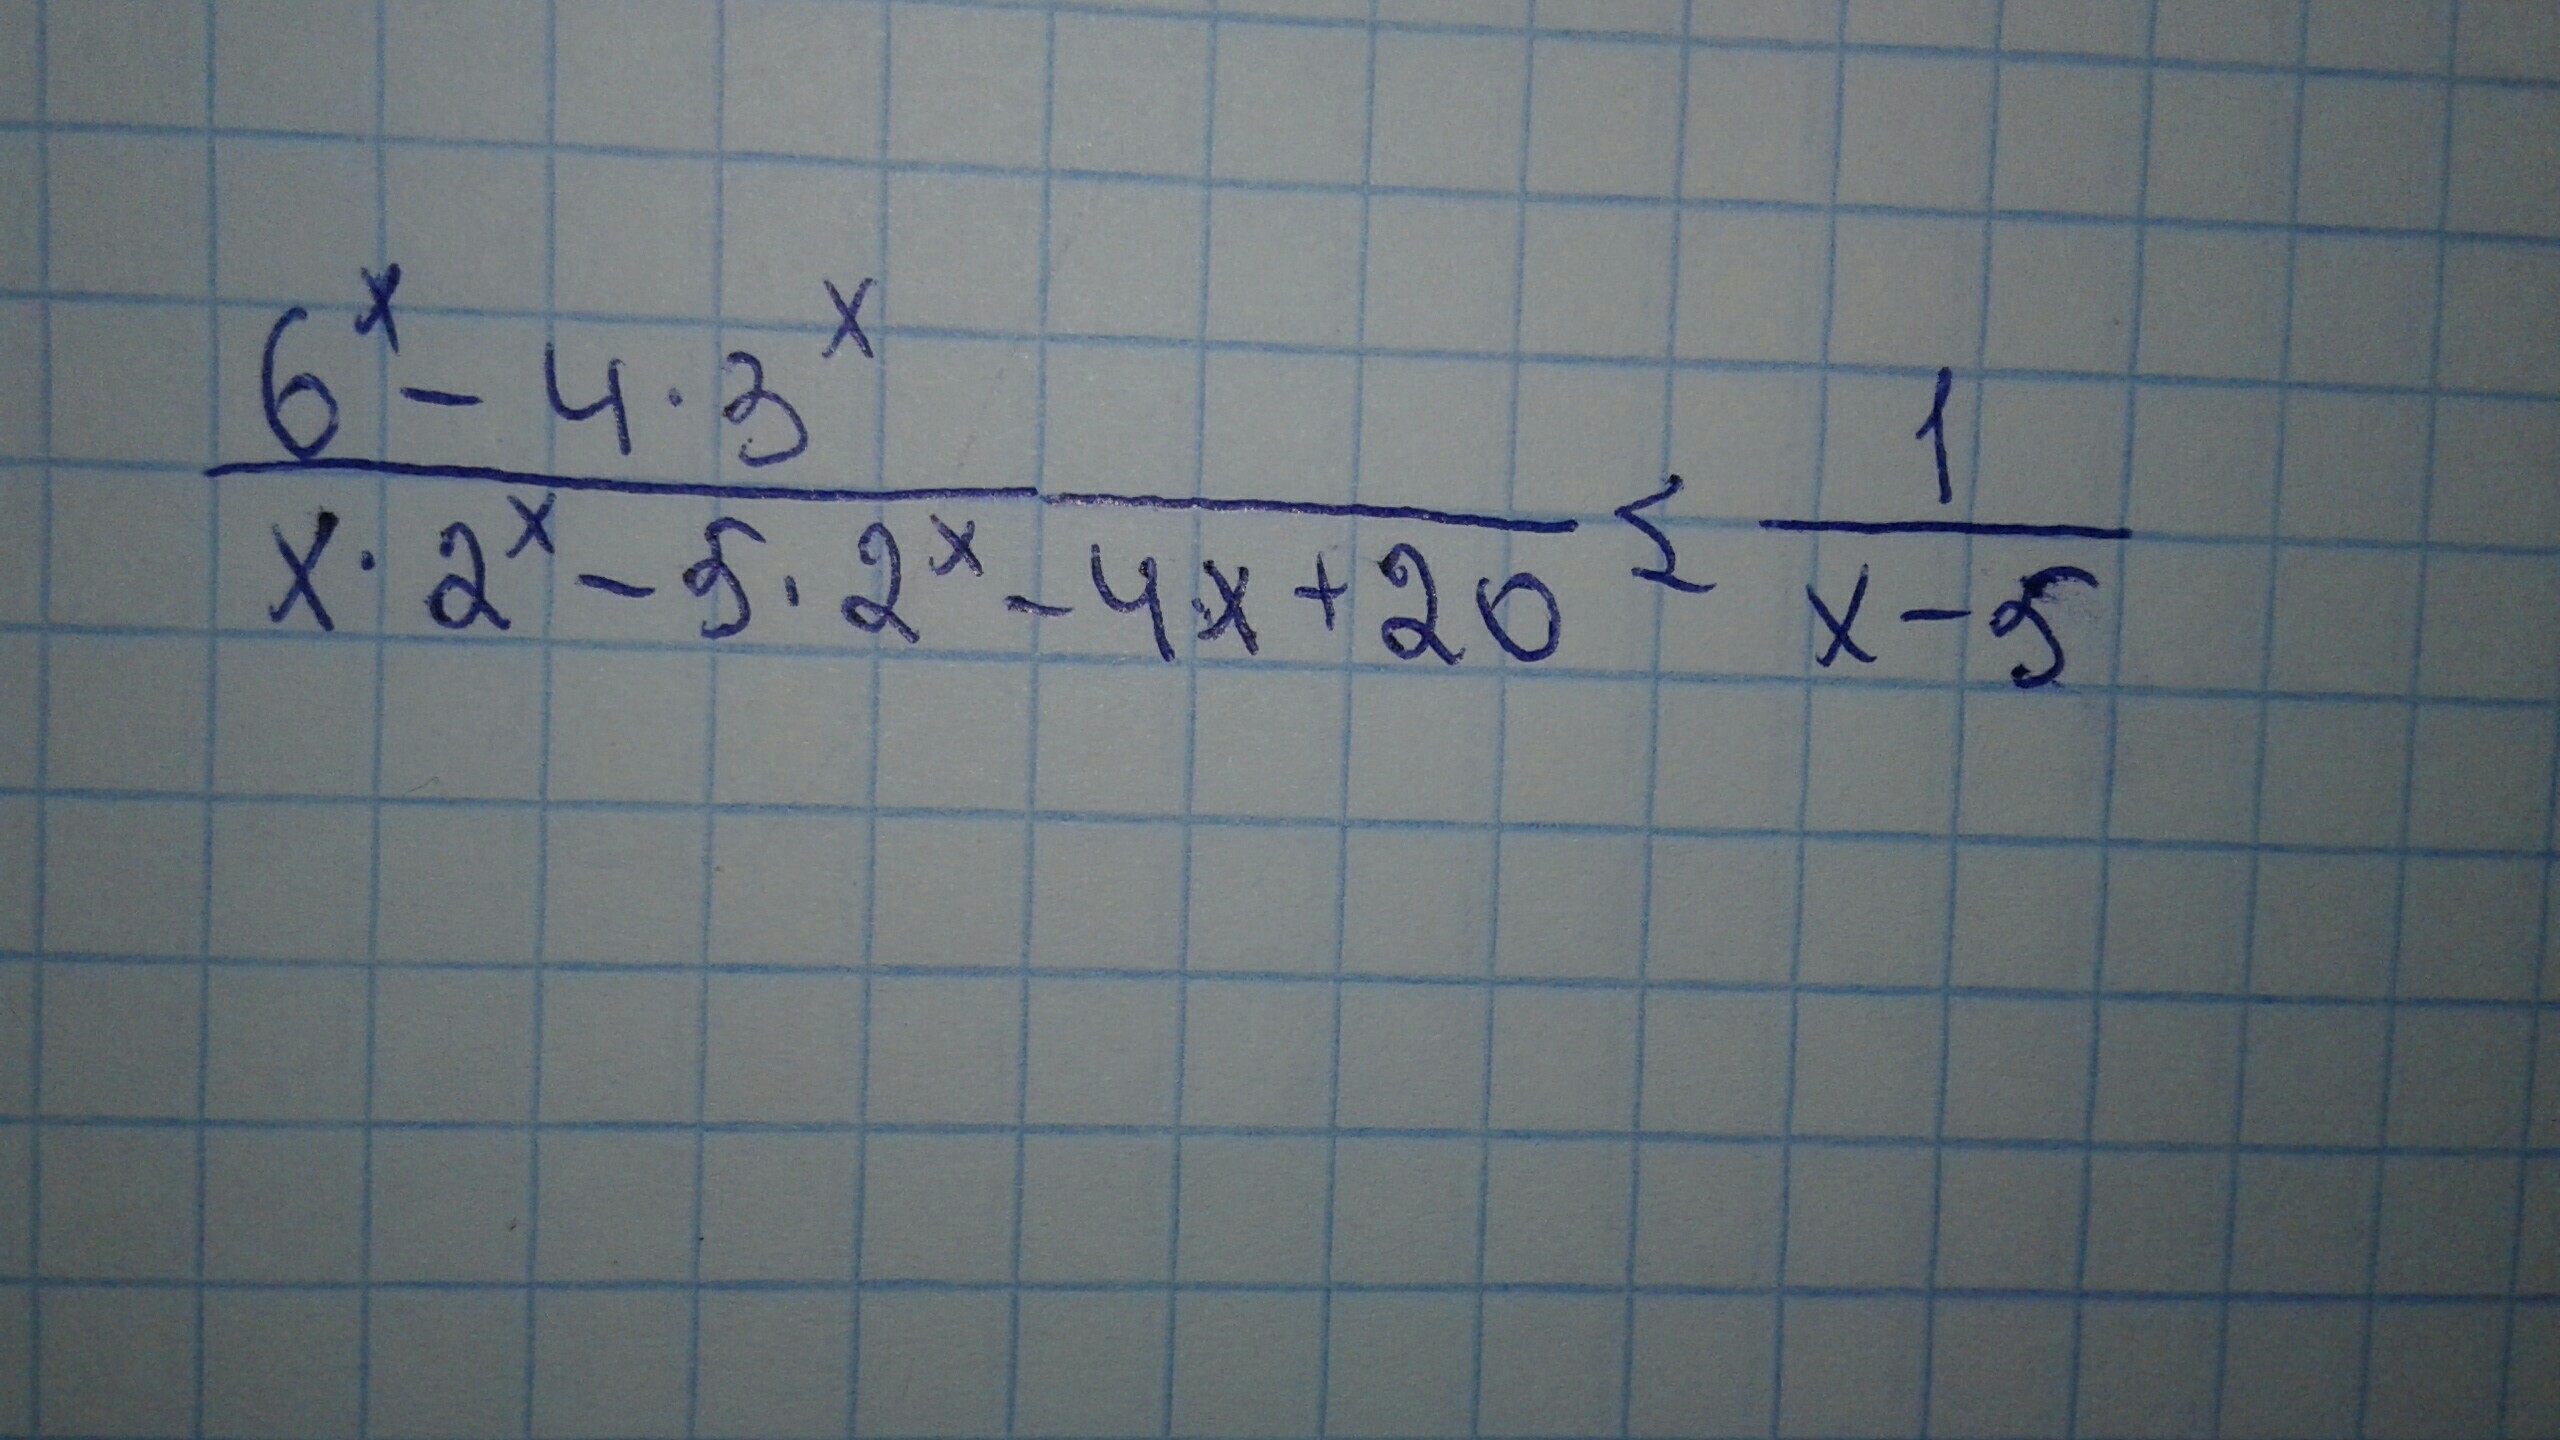 6^x - 4 · 3^x / x · 2^x - 5 · 2^x - 4x + 20 ≤ 1 / x - 5